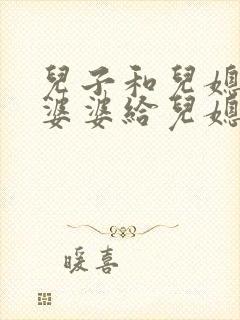 兒子和兒媳
婆婆給兒媳
暖喜